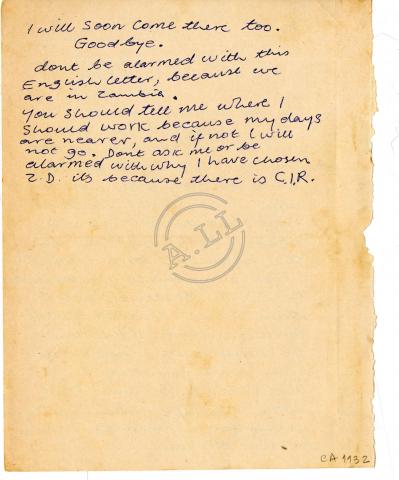 I will soon come there too.
Goodbye.
dont be alarmed with this
English letter, because we
are in Zambia.
You should tell me where I
should work because my days
are nearer, and if not I will
not go. Dont ask me or be
alarmed with why I have chosen
Z.D. its because there is C.I.R.
A.LL
CA 1132